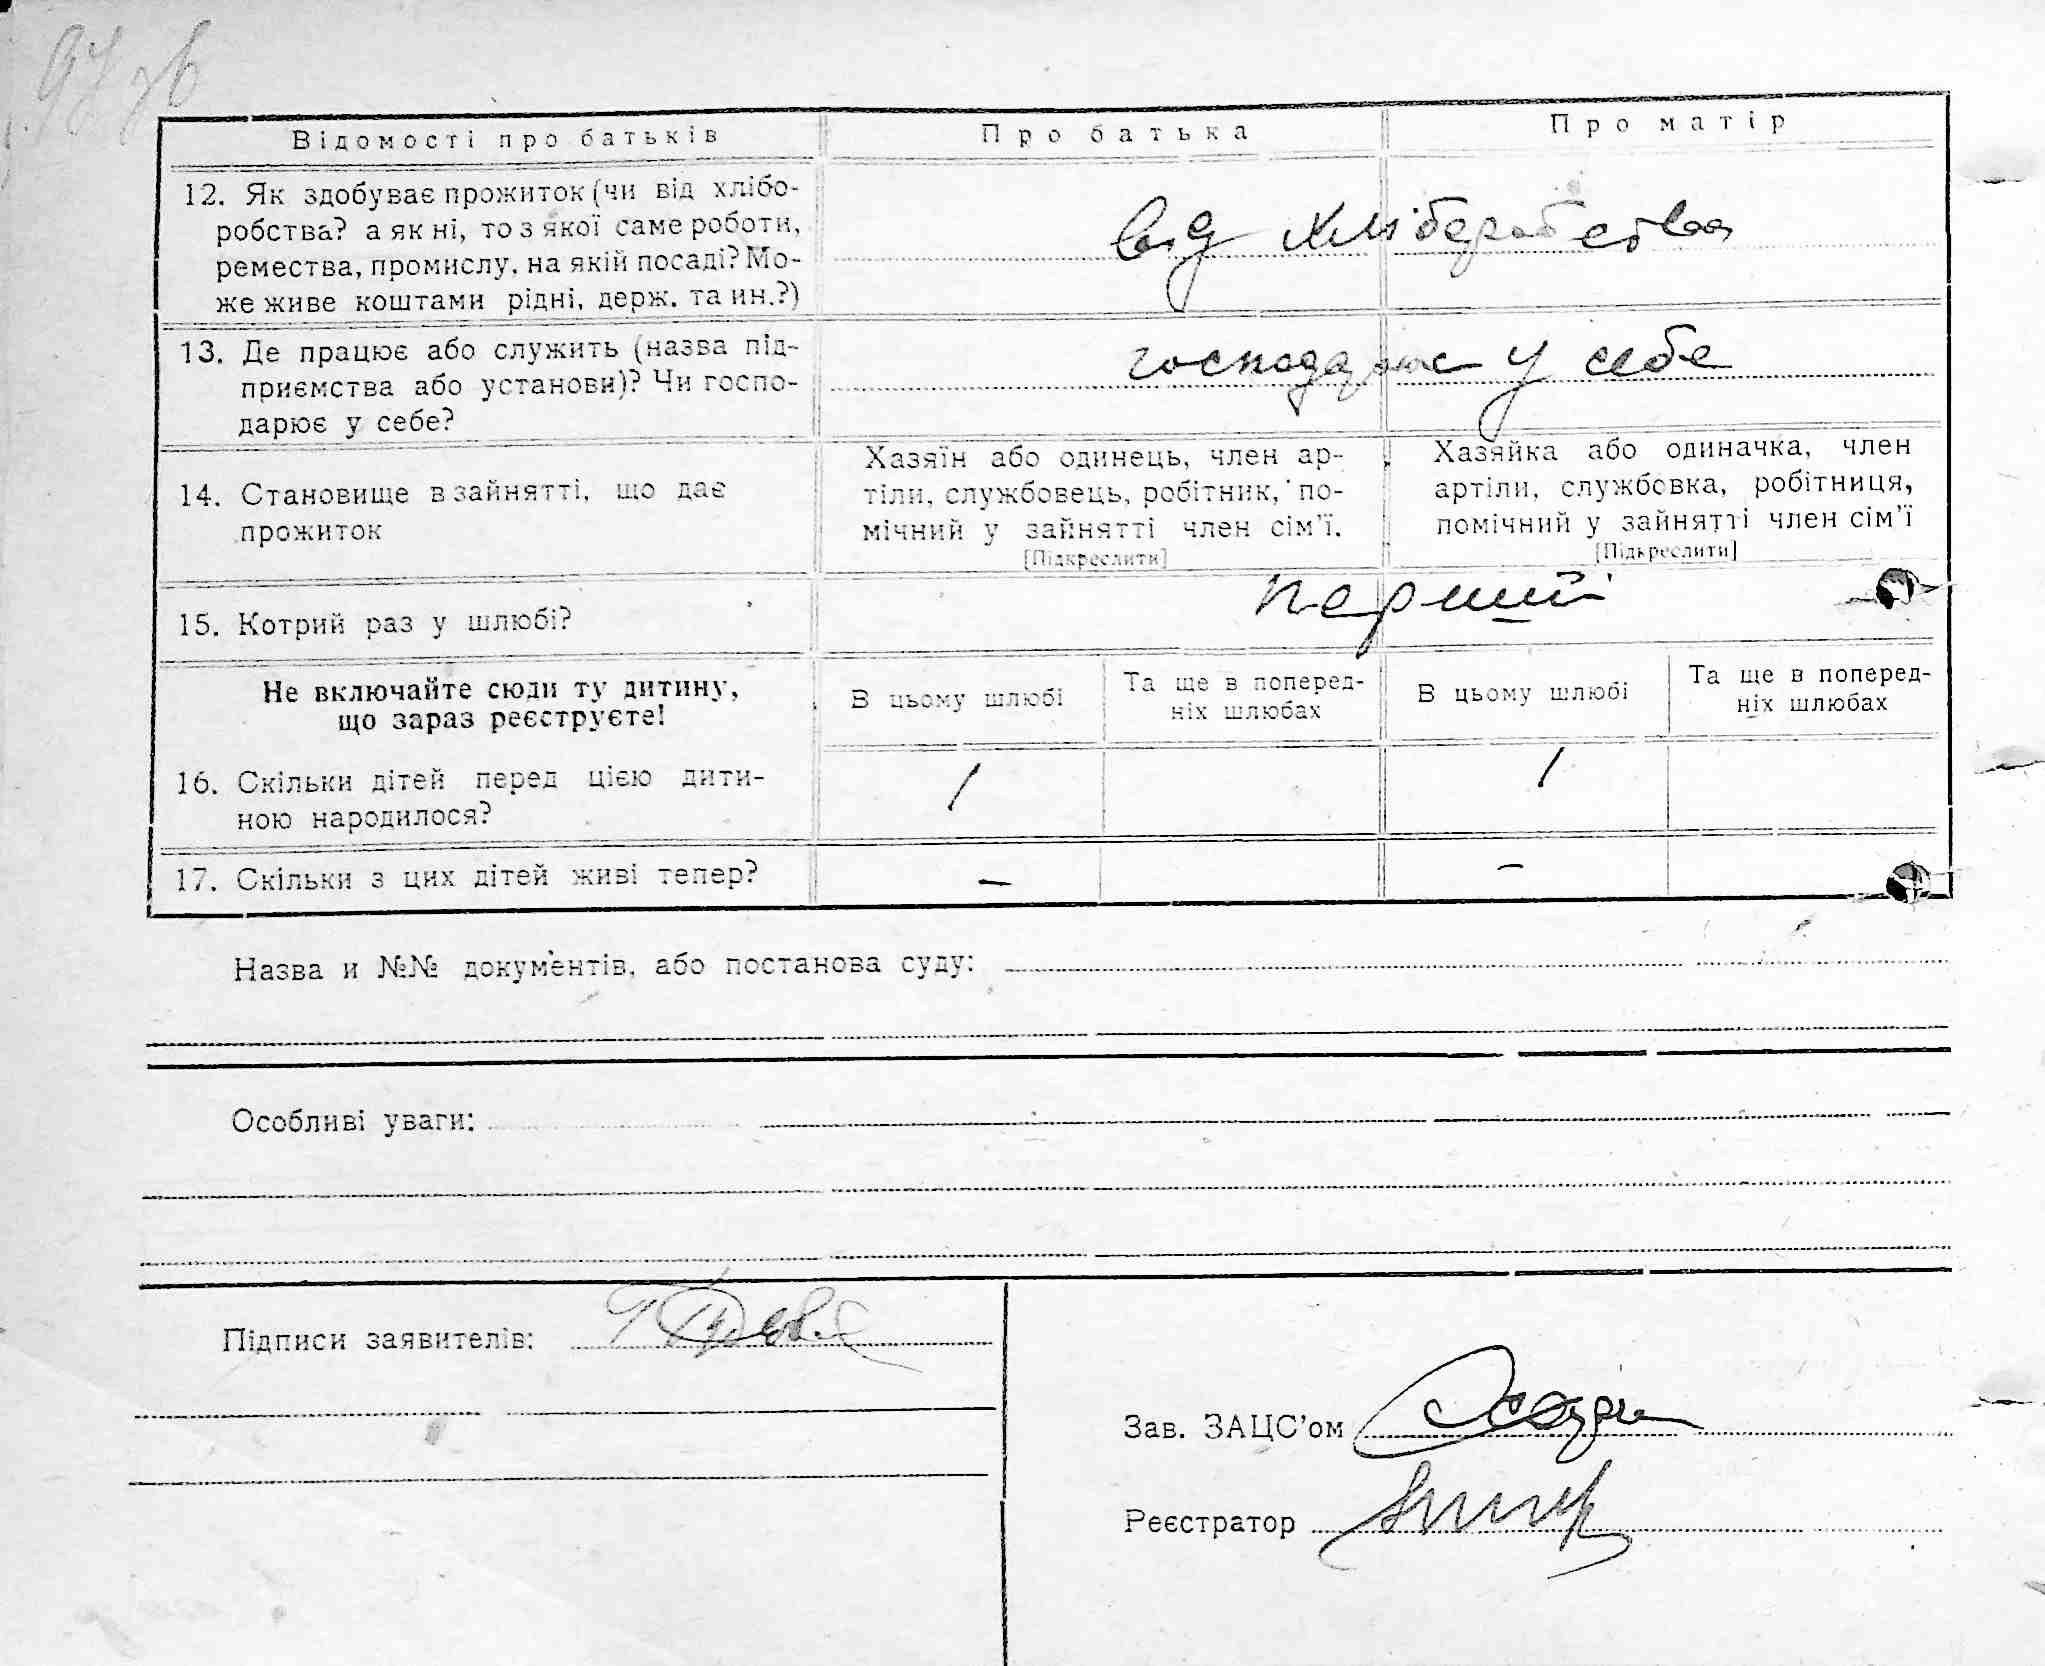 97 зв
Відомості про батьків
Про батька
Про матір
12. Як здобуває прожиток (чи від хлібо-
робства? а як ні, то з якої саме роботи,
ремества, промислу, на якій посаді? Мо-
же живе коштами рідні, держ. та ин.?)
від хліборобства
13. Де працює або служить (назва під-
приємства або установи)? Чи госпо-
дарює у себе?
господарює у себе
14. Становище в зайнятті, що дає
прожиток
Хазяїн або одинець, член ар-
тіли, службовець, робітник, по-
мічний у зайнятті член сім'ї.
[Підкреслити]
Хазяйка або одиначка, член
артіли, службовка, робітниця,
помічний у зайнятті член сім'ї
[Підкреслити]
15. Котрий раз у шлюбі?
перший
Не включайте сюди ту дитину,
що зараз реєструєте!
В цьому шлюбі
Та ще в поперед-
ніх шлюбах
В цьому шлюбі
Та ще в поперед-
ніх шлюбах
16. Скільки дітей перед цією дити-
ною народилося?
1
1
17. Скільки з цих дітей живі тепер?
–
–
Назва и №№ документів, або постанова суду:
Особливі уваги:
Підписи заявителів:
Зав. ЗАЦС'ом
Реєстратор